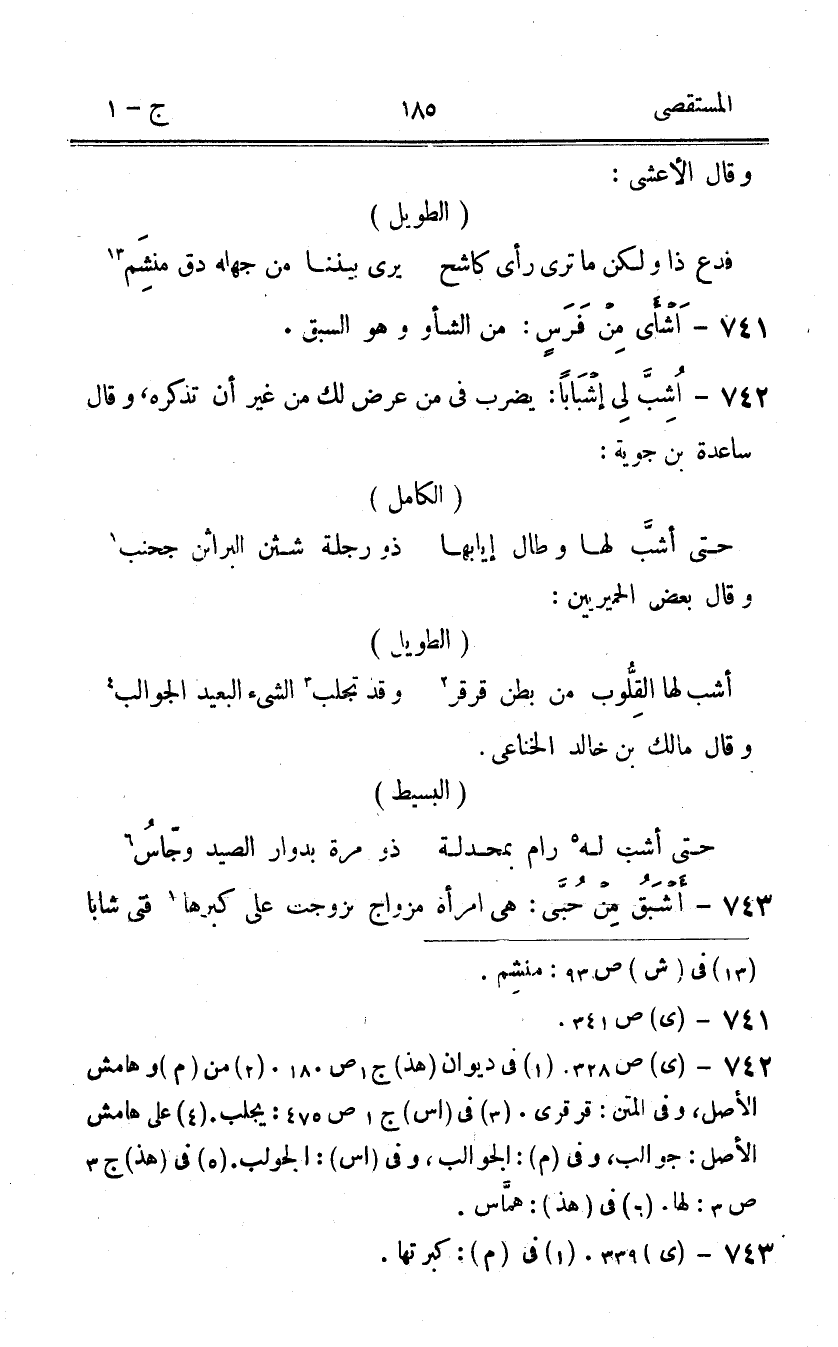 المستقصى ١٨٥ ج - ١
و قال الأعشى :
( الطويل )
فدع ذا و لكن ما ترى رأى كاشح يرى بيننا من جهله دق منشِم١٣
٧٤١ - أَشْأَى مِنْ فَرَسٍ : من الشأو و هو السبق .
٧٤٢ - أُشِبَّ لِى إِشْبَابًا : يضرب فى من عرض لك من غير أن تذكره، و قال
ساعدة بن جوية :
( الكامل )
حتى أشبَّ لها و طال إيابها ذو رجلة شثن البراثن جحنب١
و قال بعض الحميريين :
( الطويل )
أشب لها القِلُّوب من بطن قرقر٢ و قد تجلب٣ الشىء البعيد الجوالب٤
و قال مالك بن خالد الخناعى .
( البسيط )
حتى أشب له٥ رام بمحدلة ذو مرة بدوار الصيد وجّاسُ٦
٧٤٣ - أَشْبَقُ مِنْ حُبَّى : هى امرأة مزواج تزوجت على كبرها١ فتى شابا
(١٣) فى ( ش ) ص ٩٣ : منشِم .
٧٤١ - (ى) ص ٣٤١ .
٧٤٢ - (ى) ص ٣٢٨. (١) فى ديوان (هذ) ج ١ ص ١٨٠ . (٢) من ( م ) و هامش
الأصل، و فى المتن : قرقرى . (٣) فى (اس) ج ١ ص ٤٧٥ : يجلب. (٤) على هامش
الأصل : جوالب، و فى (م) : الجوالب، و فى (اس) : الجولب. (٥) فى (هذ) ج ٣
ص ٣ : لها. (٦) فى ( هذ ) : همَّاس .
٧٤٣ - (ى ) ٣٣٩ . (١) فى ( م ) : كبرتها .